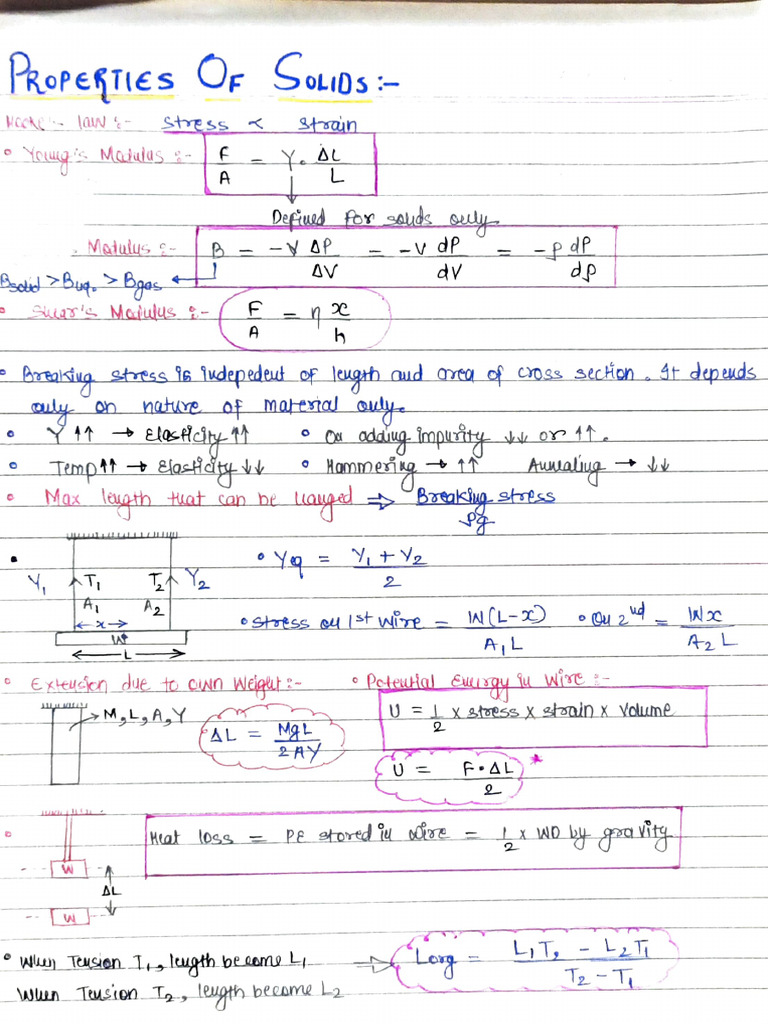 PROPERTIES OF SOLIDS:-
Hooke's law :- stress ∝ strain
• Young's Modulus :- F/A = Y. ΔL/L
Defined for solids only.
. Modulus :- B = -V ΔP/ΔV = -V dP/dV = -ρ dP/dρ
Bsolid > BLiq. > Bgas
• Shear's Modulus :- F/A = η x/h
• Breaking stress is indepedent of length and area of cross section. It depends
only on nature of material only.
• Y ↑↑ → Elasticity ↑↑ • On adding impurity ↓↓ or ↑↑.
• Temp ↑↑ → Elasticity ↓↓ • Hammering → ↑↑ Annealing → ↓↓
• Max length that can be hanged ⇒ Breaking stress/ρg
• Y1 T1 A1 T2 A2 Y2 x W L
• Yeq = (Y1 + Y2)/2
• Stress on 1st wire = W(L-x)/A1L • On 2nd = Wx/A2L
• Extension due to own weight :- • Potential Energy in wire :-
M, L, A, Y ΔL = MgL/2AY U = 1/2 x stress x strain x volume
U = F·ΔL/2 *
• Heat loss = PE stored in wire = 1/2 x WD by gravity
W
ΔL
W
• When Tension T1, length become L1
When Tension T2, length become L2
Lorg = (L1T2 - L2T1)/(T2 - T1)